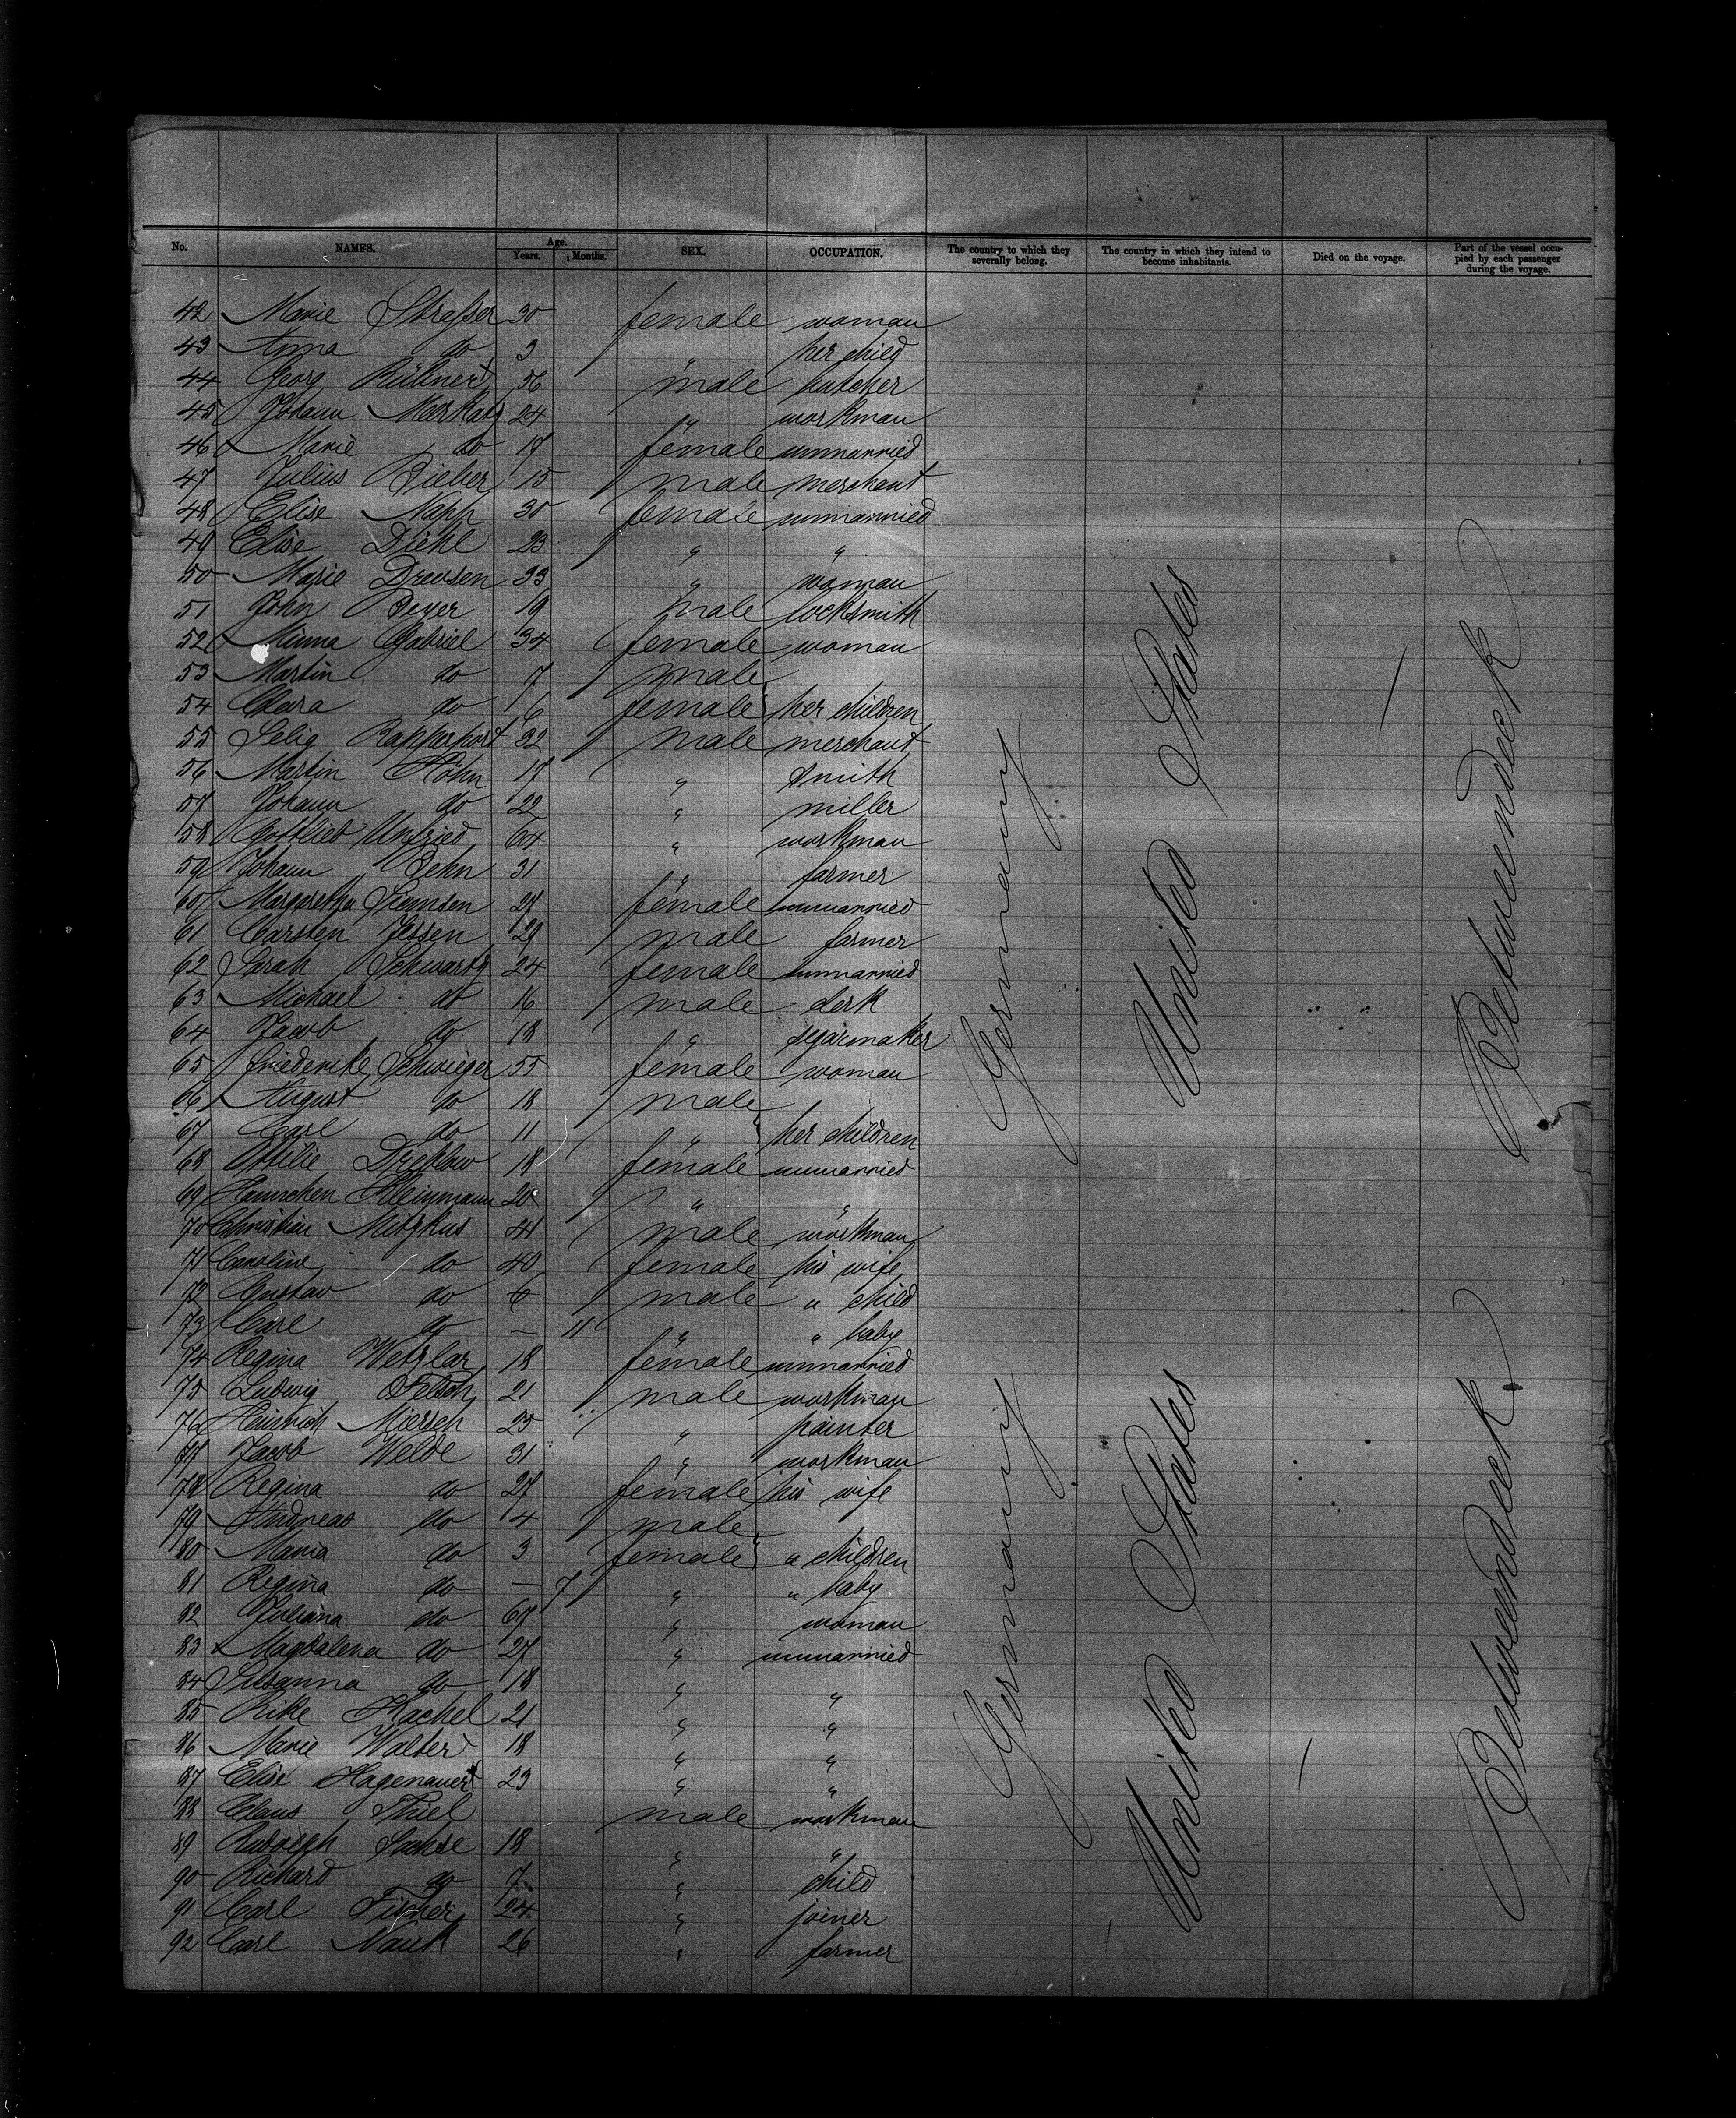 No. NAMES. Age. Years. Months. SEX. OCCUPATION. The country to which they severally belong. The country in which they intend to become inhabitants. Died on the voyage. Part of the vessel occupied by each passenger during the voyage.
42 Marie Straßer 30 female woman
43 Anna do 3 " her child
44 Georg 56 male butcher
45 Johann 24 " workman
46 Marie do 17 female unmarried
47 Julius Bieber 15 male merchant
48 Elise Napp 30 female unmarried
49 Elise Diehl 23 " "
50 Marie Drewsen 33 " woman
51 John Beyer 19 male locksmith
52 Minna Gabriel 34 female woman
53 Martin do 7 male
54 Clara do 6 female her children
55 Selig Rapperport 32 male merchant
56 Martin Höhn 17 " smith
57 Johann do 22 " miller
58 Gottlieb Unfried 64 " workman
59 Johann Behn 31 " farmer
60 Margaretha Siemsen 27 female unmarried
61 Carsten Jessen 29 male farmer
62 Sarah Schwartz 24 female unmarried
63 Michael do 16 male clerk
64 Jacob do 18 " segarmaker
65 Friederike Schwieger 55 female woman
66 August do 18 male
67 Carl do 11 " her children
68 Ottilie 18 female unmarried
69 Hannchen Kleinmann 20 " "
70 Christian Mitzkus 41 male workman
71 Caroline do 40 female his wife
72 Gustav do 6 male " child
73 Carl do — 11 " " baby
74 Regina Wetzlar 18 female unmarried
75 Ludwig 21 male workman
76 Heinrich Miersch 25 " painter
77 Jacob Welde 31 " workman
78 Regina do 27 female his wife
79 Andreas do 4 male
80 Maria do 3 female " children
81 Regina do — 7 " " baby
82 Juliana do 67 " woman
83 Magdalena do 27 " unmarried
84 Susanna do 18 " "
85 Rike Hachel 21 " "
86 Marie Walter 18 " "
87 Elise Hagenauer 23 " "
88 Claus Thiel male workman
89 Rudolph Sachse 18 " "
90 Richard do 7 " child
91 Carl Fischer 24 " joiner
92 Carl Nauk 26 " farmer
Germany United States Betweendeck
Germany United States Betweendeck